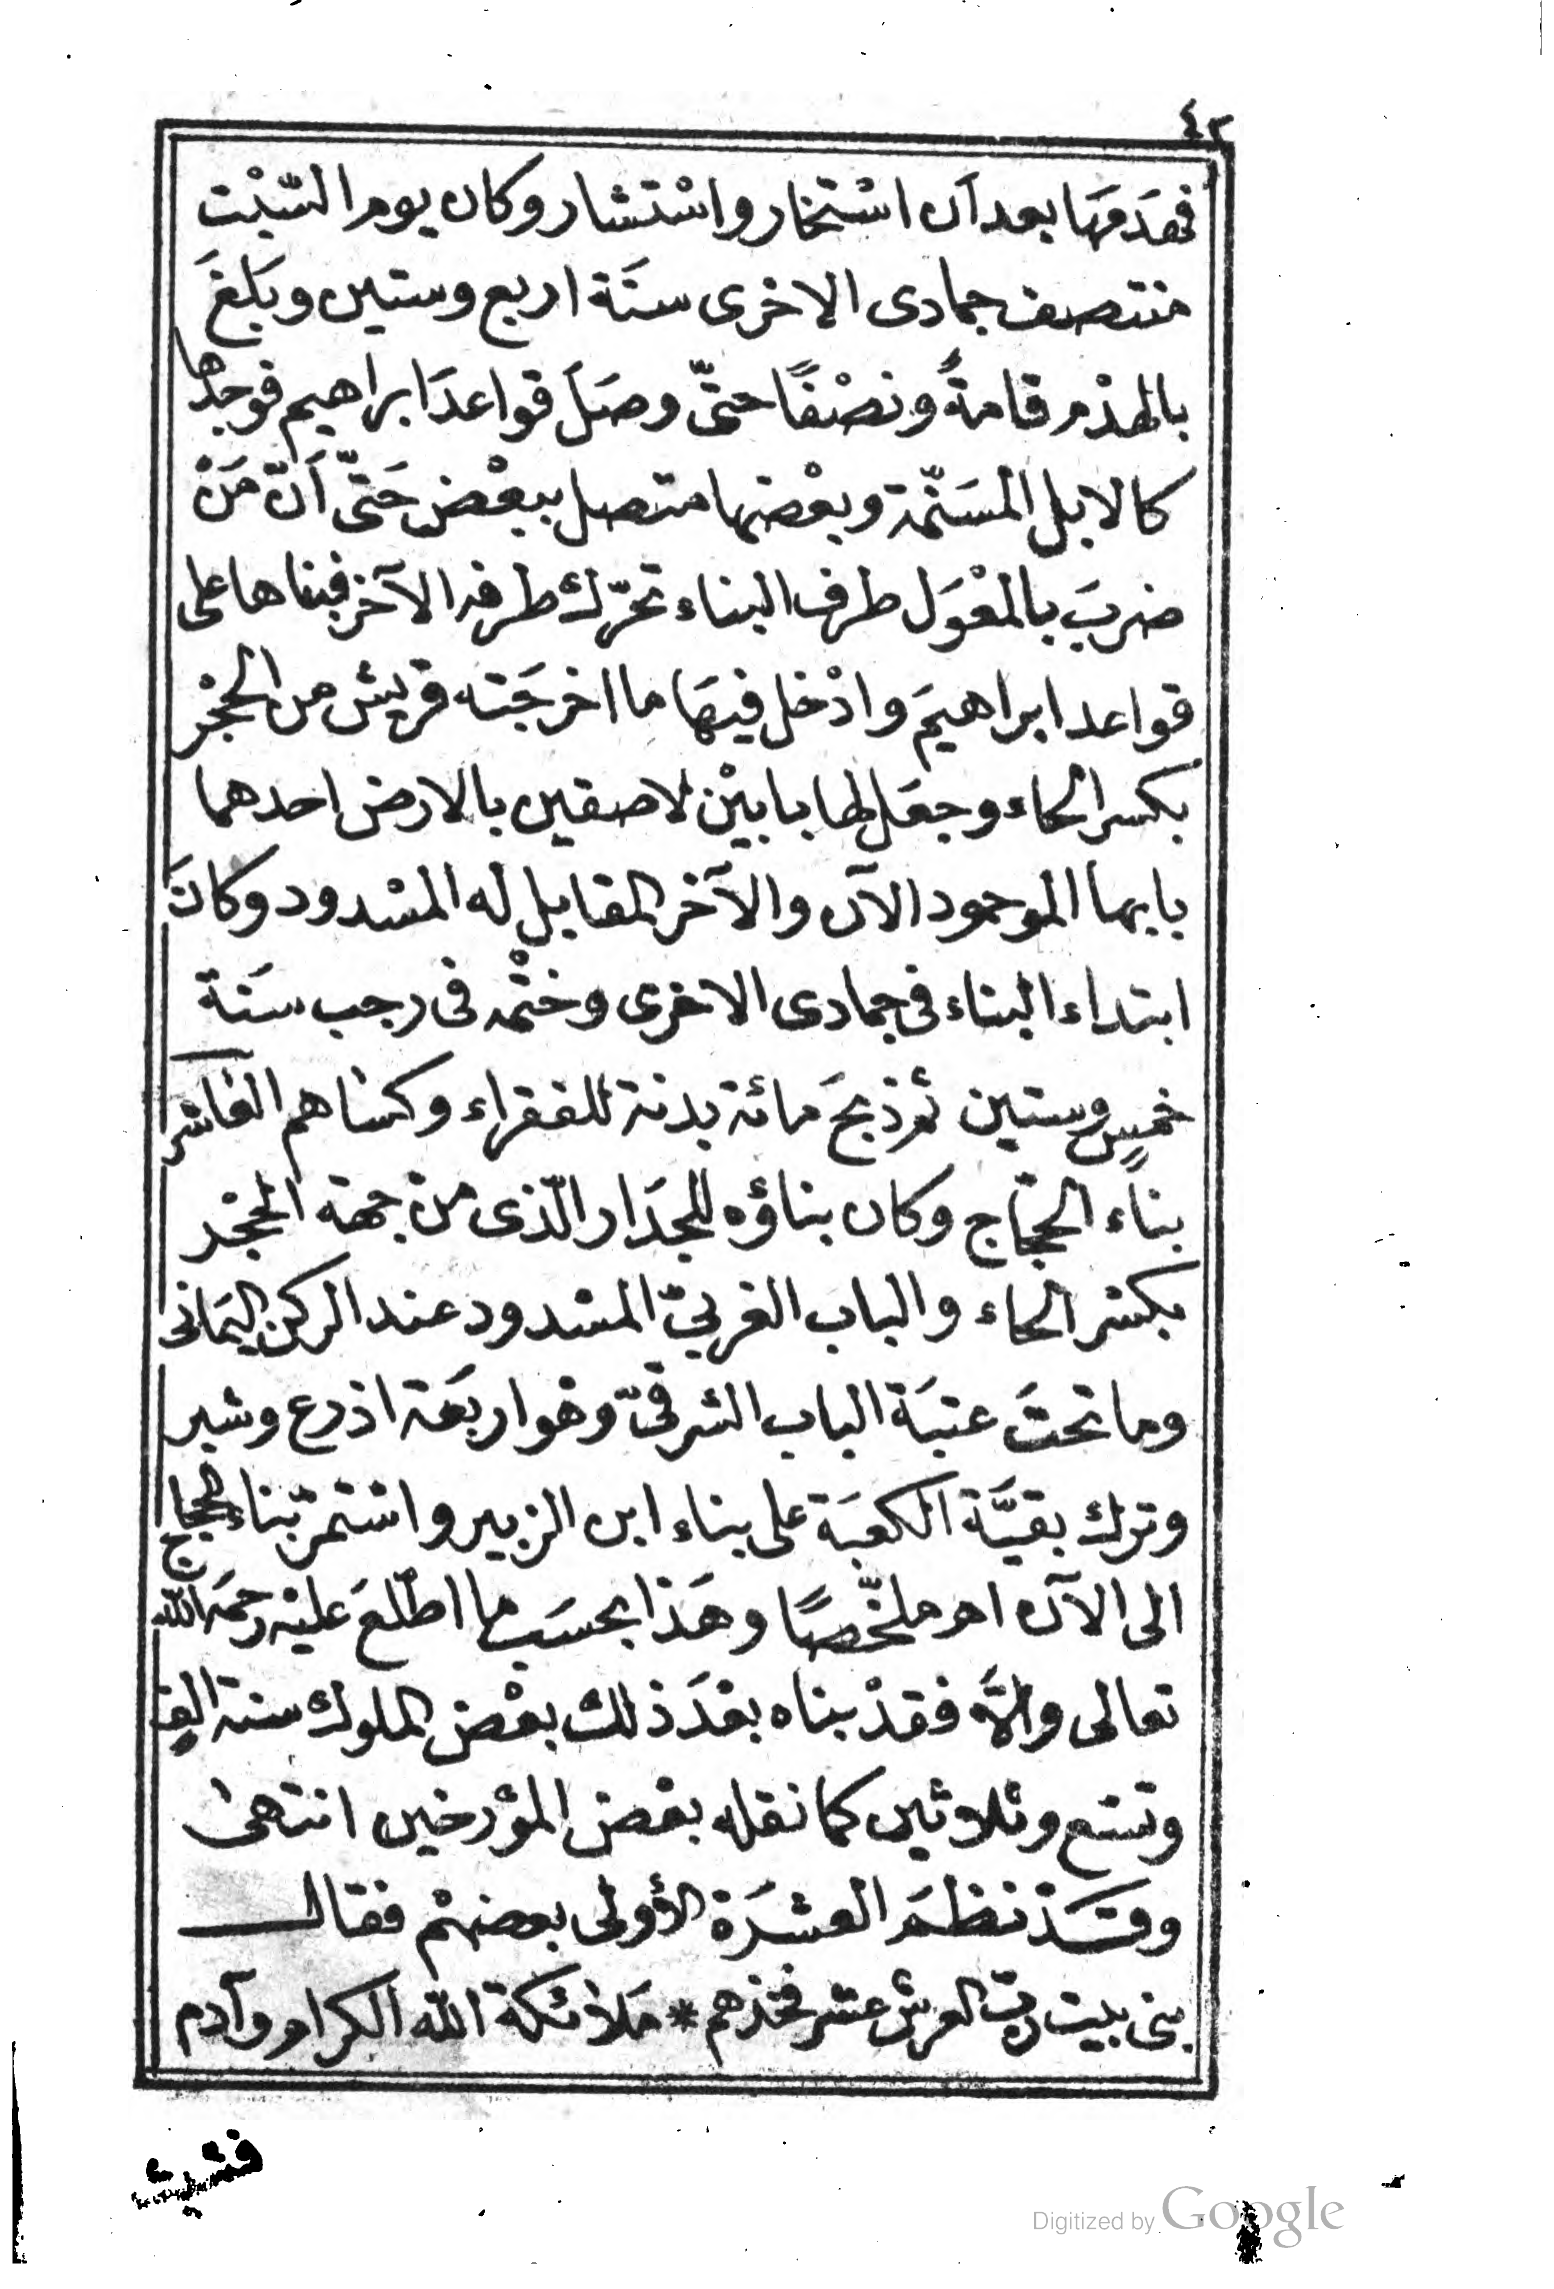 ٤٢
فهَدَمَهَا بعد اَن اسْتخار واسْتشار وكان يوم السّبْت
منتصف جمادى الاخرى سنَة اربع وستين وبَلغَ
بالهدْم قامةً ونصْفًا حتىّ وصَلَ قواعدَ ابراهيم فوجدها
كالابل المسَنّمة وبعْضها متصل ببعْض حَتىّ اَنّ مَنْ
ضربَ بالمعْوَل طرف البناء تحرّك طرفه الآخر فبناها على
قواعد ابراهيمَ وادْخل فيهَا ما اخرجَته قريش من الحجْر
بكسر الحاء وجعَل لها بابيْن لاصقين بالارض احدهما
بابها الموجود الآن والآخر المقابل له المسْدود وكانَ
ابتداء البناء فى جمادى الاخرى وختْمه فى رجب سَنة
خمسٍ وستين ثم ذبحَ مائة بدنة للفقراء وكساهم العَاشر
بناء الحجّاج وكان بناؤه للجدَار الّذى من جهة الحجْر
بكسْر الحاء والباب الغربىّ المسْدود عند الركن اليَمانى
وما تحتَ عتبَة الباب الشرقىّ وهْو اربعَة اذرع وشبر
وترك بقيَّة الكعبَة على بناء ابن الزبير واسْتمرّ بناء الحجاج
الى الآن اهـ ملخّصًا وهَذا بحسَب ما اطّلعَ عليْه رحمَه الله
تعالى والاّ فقدْ بناه بعْدَ ذلك بعْض الملوك سنة الف
وتسْع وثلاثين كما نقله بعْض المؤرخين انتهىٰ
وقَدْ نظمَ العشرَة الأولى بعضهمْ فقال
بنى بيت ربّ العرش عشر فخذهم * مَلائكة الله الكرام وآدم
Digitized by Google